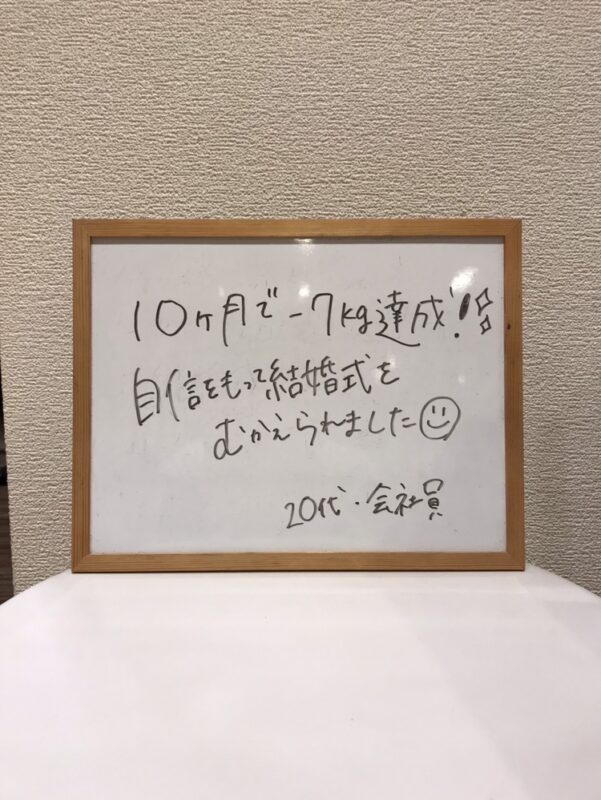 10ヶ月で-7kg達成!
自信をもって結婚式を
むかえられました
20代・会社員